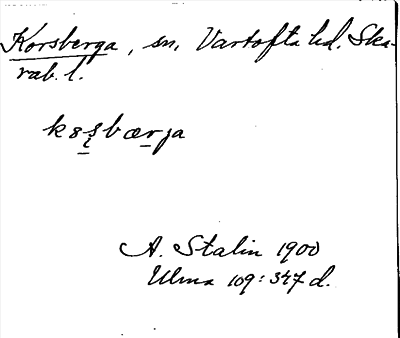 Korsberga, sn, Vartofta hd. Ska-
rab. l.
A. Stalin 1900
Ulma 109:347 d.